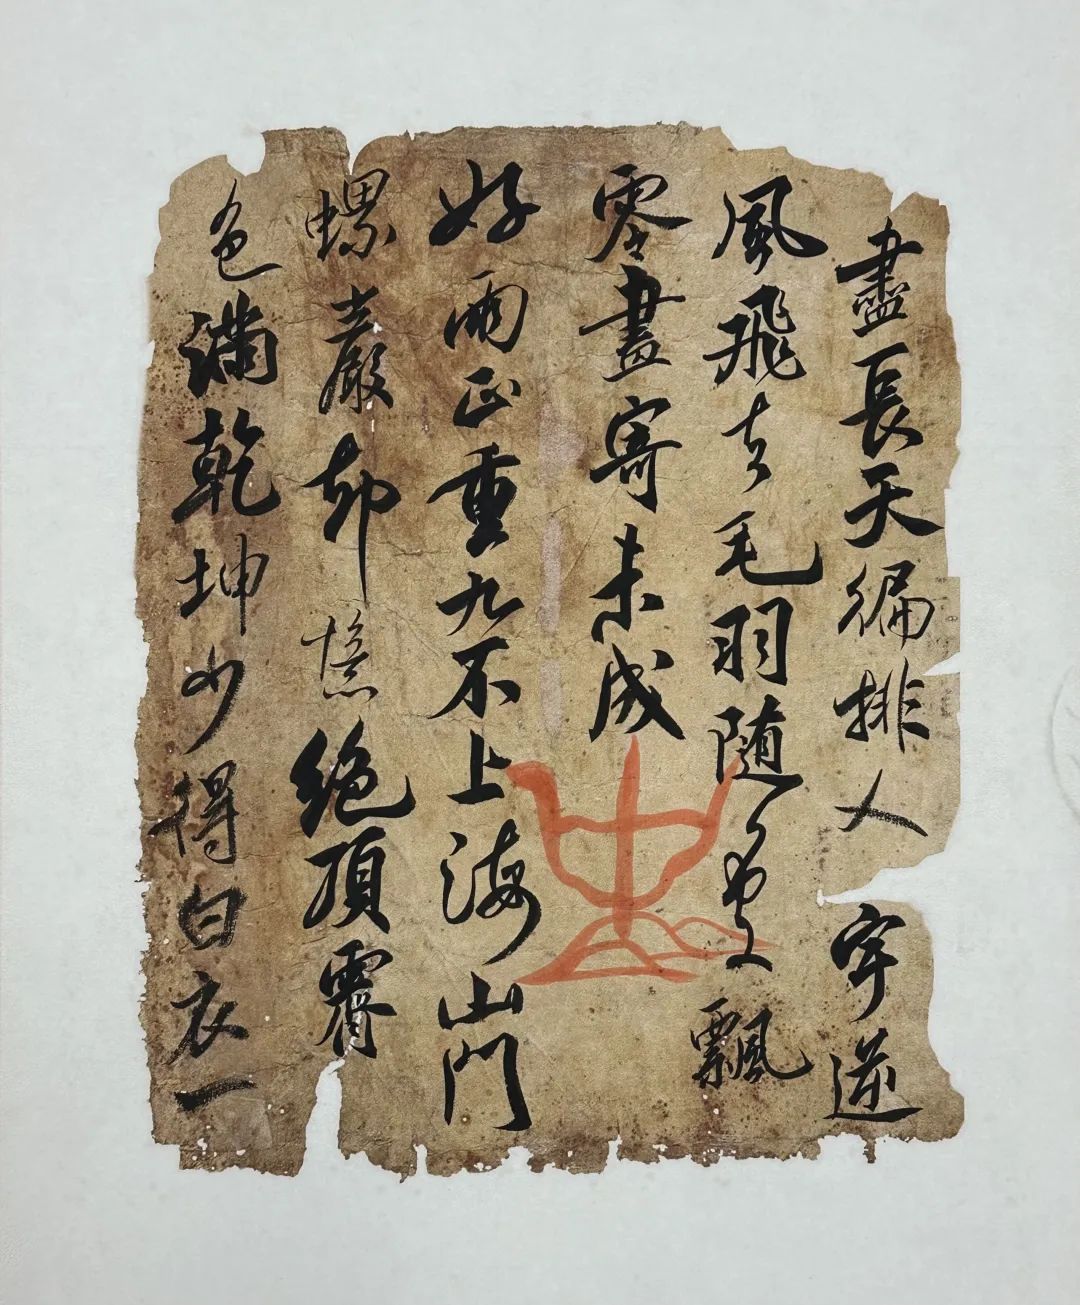 盡長天徧排人字逆
風飛去毛羽隨處飄
零書寄未成
好雨正重九不上海山門
螺巖却憶絕頂霽
色滿乾坤少得白衣一